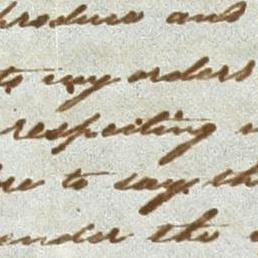 produce and
to my orders
respecting
to say th
ender the